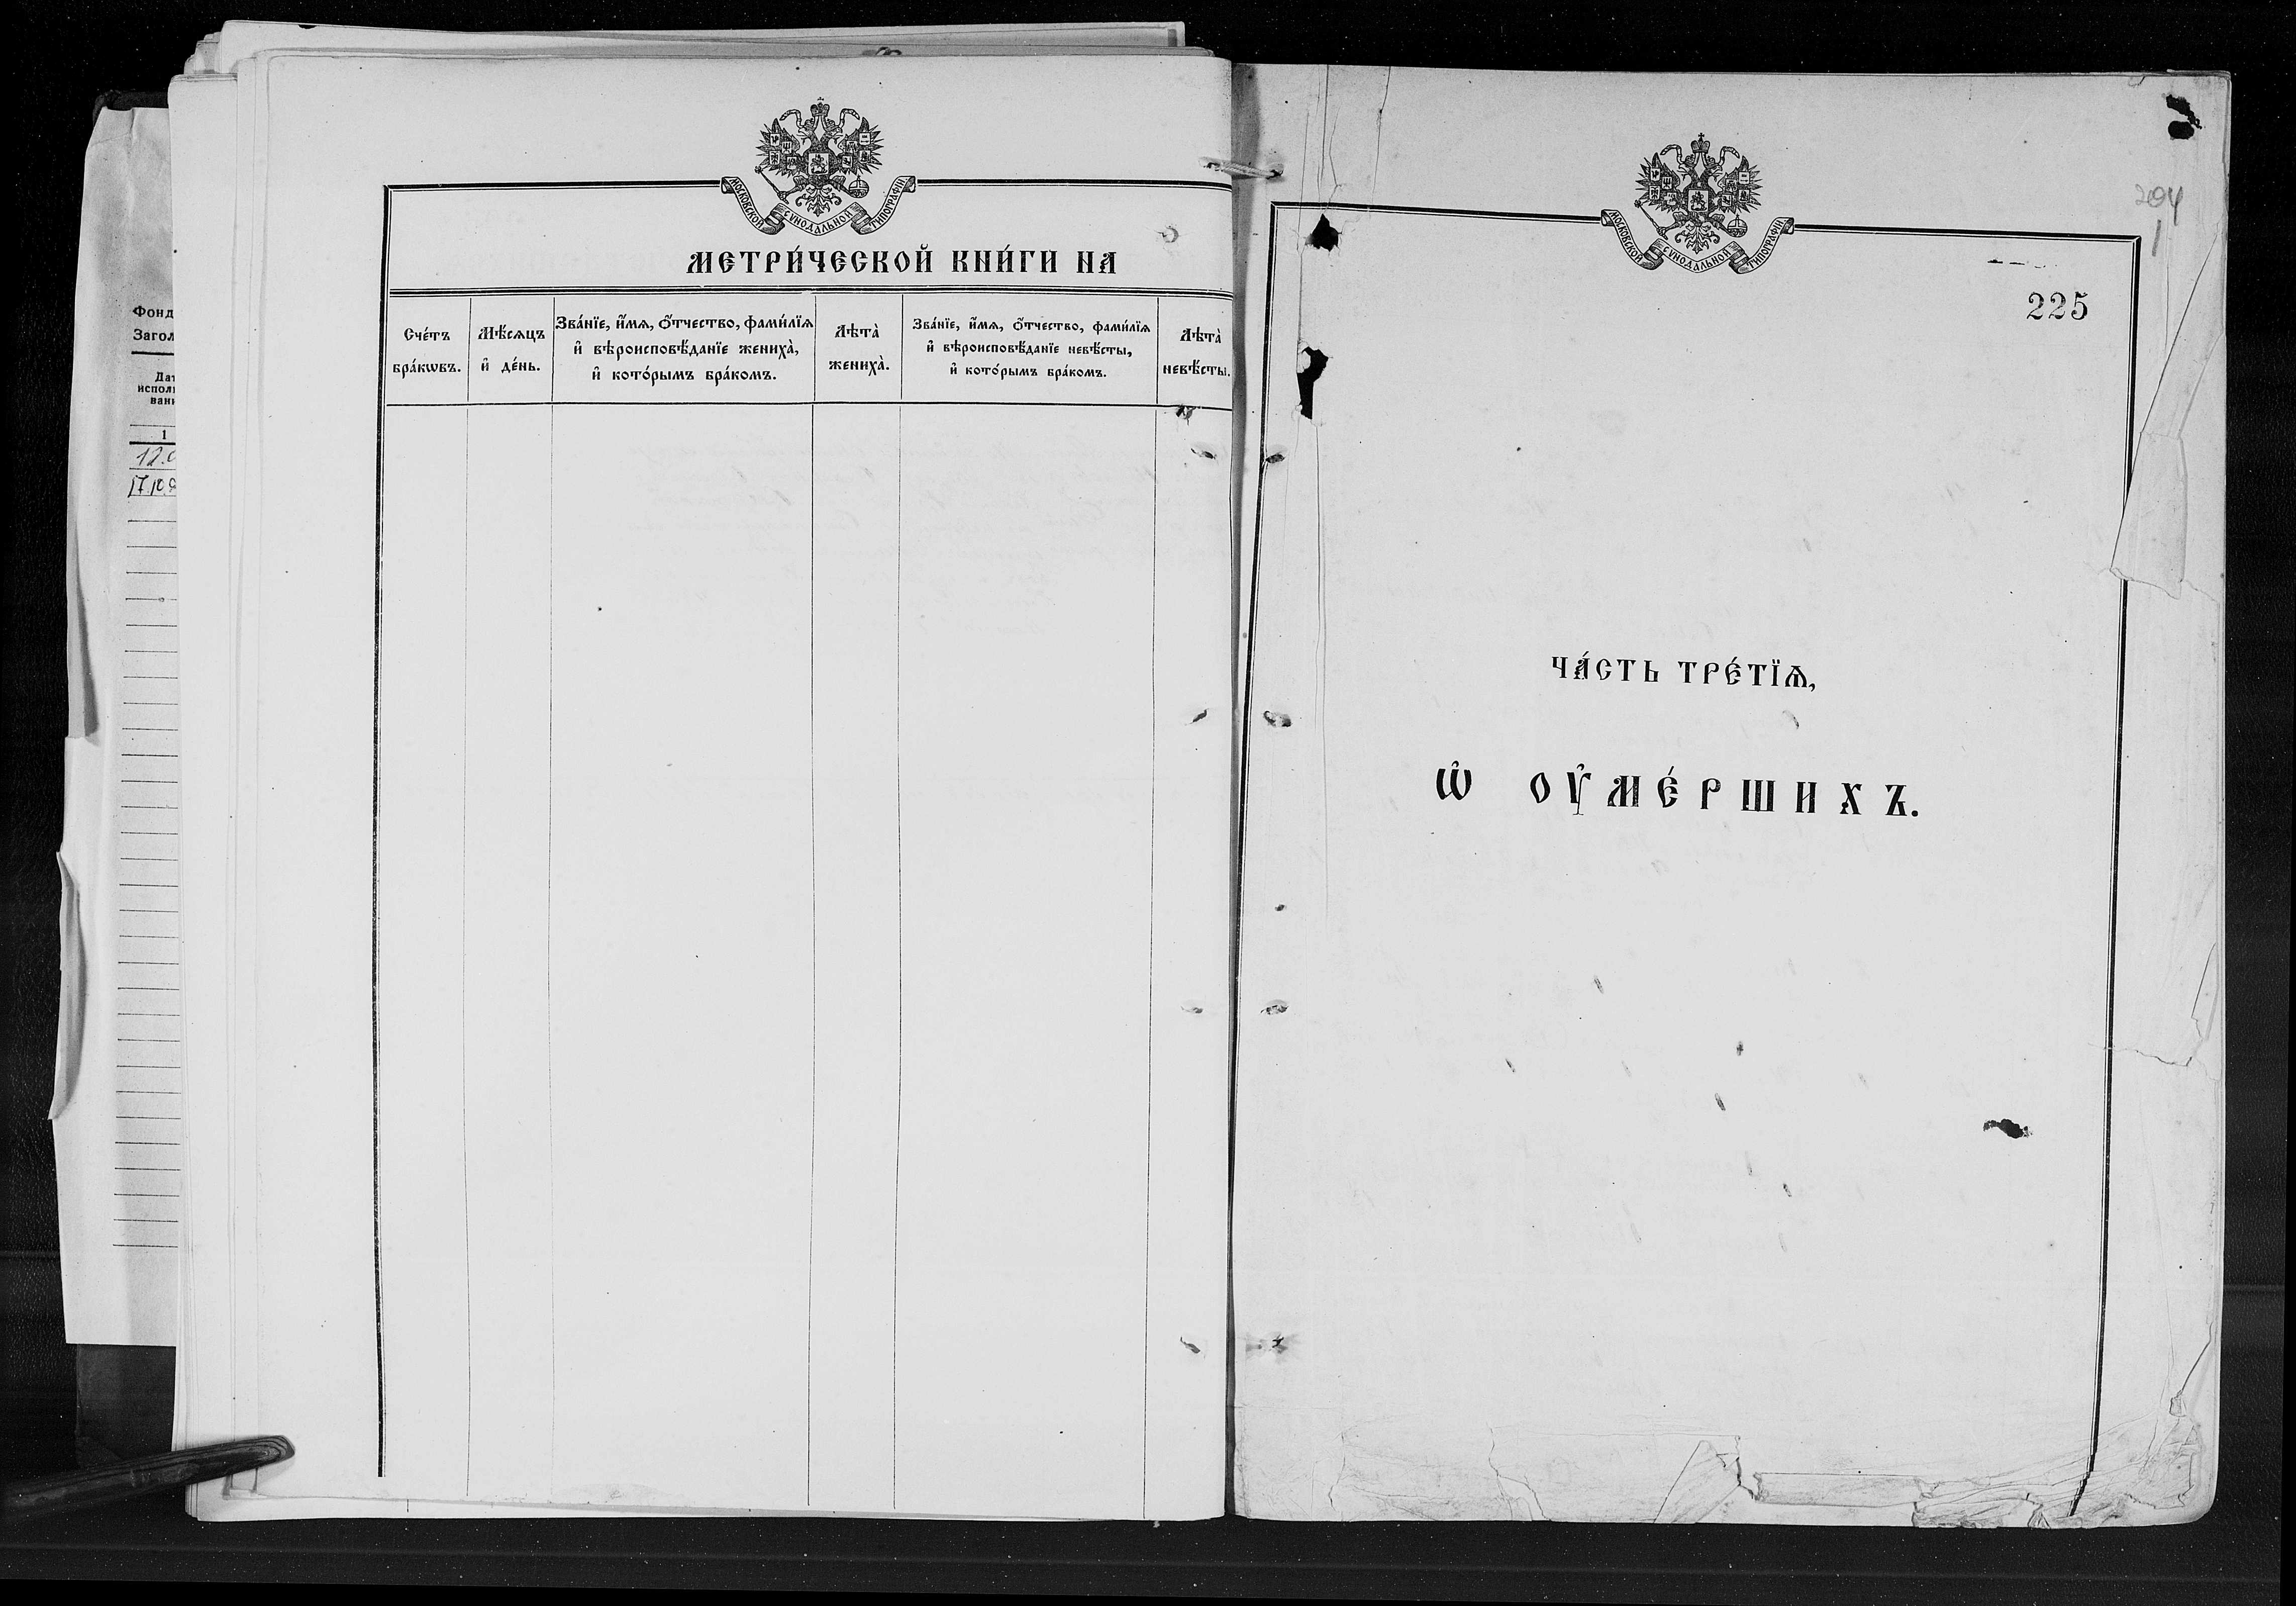 Фонд
Загол
Дат
исполь
вани
1
12.0
17.10.9
МОСКОВСКОЙ СѴНОДАЛЬНОЙ ТИПОГРАФІИ
МЕТРИ́ЧЕСКОЙ КНИ́ГИ НА
Сче́тъ
бра́кѡвъ.
Мѣ́сѧцъ
и҆ де́нь.
Зва́нїе, и҆́мѧ, ѻ҆́тчество, фами́лїѧ
и҆ вѣроисповѣ́данїе жениха̀,
и҆ кото́рымъ бра́комъ.
Лѣта̀
жениха̀.
Зва́нїе, и҆́мѧ, ѻ҆́тчество, фами́лїѧ
и҆ вѣроисповѣ́данїе невѣ́сты,
и҆ кото́рымъ бра́комъ.
Лѣта̀
невѣ́сты.
МОСКОВСКОЙ СѴНОДАЛЬНОЙ ТИПОГРАФІИ
204
225
ЧА́СТЬ ТРЕ́ТЇѦ,
Ѡ҆ ОУ҆МЕ́РШИХЪ.